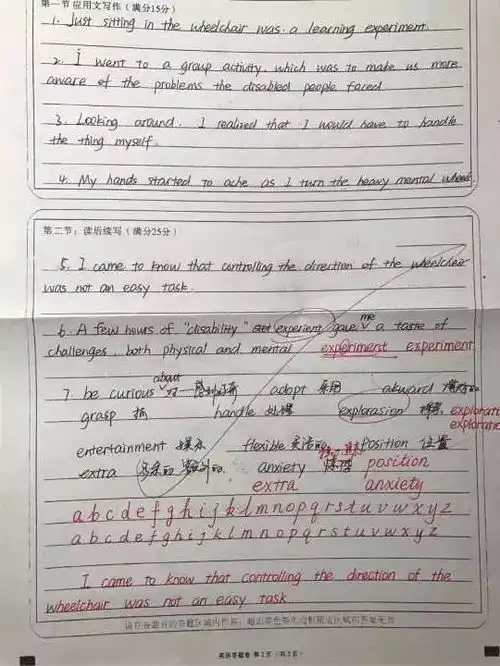 第一节 应用文写作（满分15分）
1. Just sitting in the wheelchair was a learning experiment.
2. I went to a group activity, which was to make us more
aware of the problems the disabled people faced
3. Looking around. I realized that I would have to handle
the thing myself.
4. My hands started to ache as I turn the heavy mental wheels
第二节：读后续写（满分25分）
5. I came to know that controlling the direction of the wheelchair
was not an easy task.
6. A few hours of "disability" experient gave me a taste of
challenges, both physical and mental experiment experiment
7. be curious about 对 adopt 采用 akward
grasp 抓 handle 处理 explorasion 探索
entertainment 娱乐 flexible 灵活的 position 位置
extra 额外的 anxiety position
extra anxiety
a b c d e f g h i j k l m n o p q r s t u v w x y z
a b c d e f g h i j k l m n o p q r s t u v w x y z
I came to know that controlling the direction of the
wheelchair was not an easy task
请在各题目的答题区域内作答，超出黑色矩形边框限定区域的答案无效
英语答题卷 第2页（共2页）